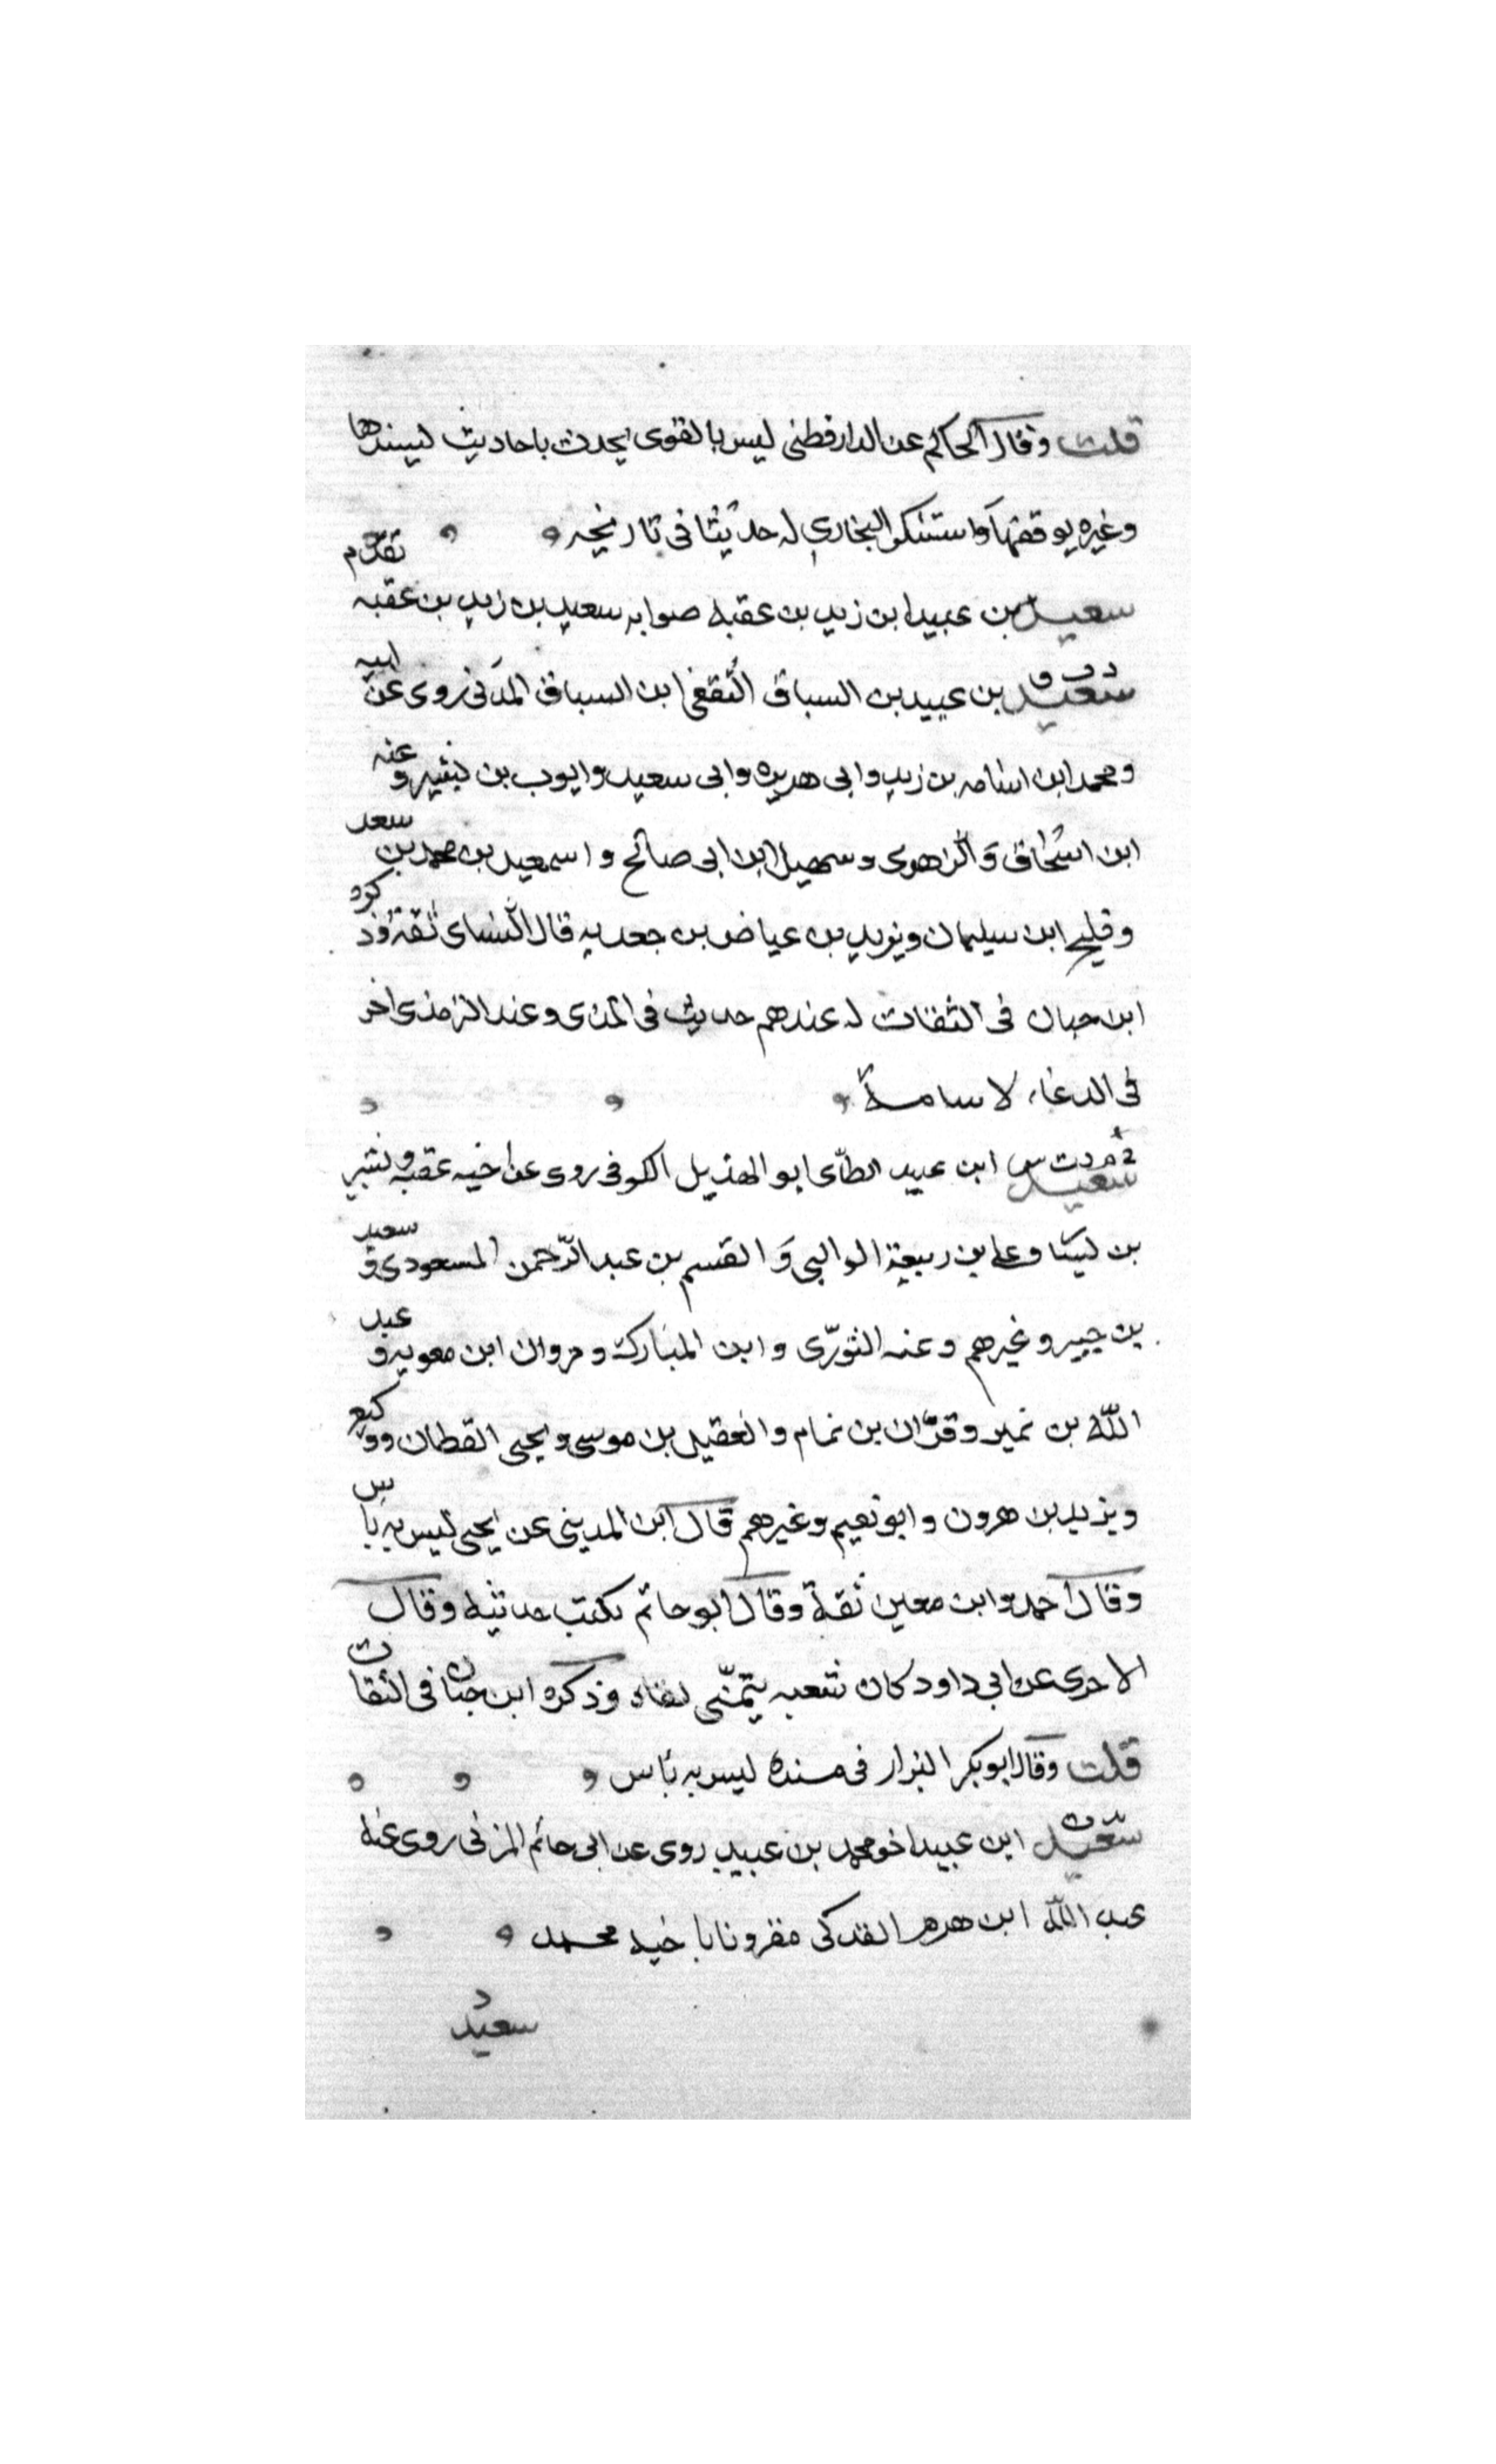 قلت وقال الحاكم عن الدارقطنى ليس بالقوى يحدث باحاديث ليسندها
وغيره يوقفها واستنكر البخاري له حديثا فى تاريخه
سعيد بن عبيد ابن زيد بن عقبه صوابه سعيد بن زيد بن عقبه تقدم
د ت ق سعيد بن عبيد بن السباق الثقفى ابن السباق المدنى روى عن ابيه
ومحمد ابن اسامه بن زيد وابى هريره وابى سعيد وايوب بن بشير وعنه
ابن اسحاق والزهرى وسهيل ابن ابى صالح واسمعيل بن محمد بن سعد
وفليح ابن سليمان ويزيد بن عياض بن جعدبه قال النساى ثقة وذكره
ابن حبان فى الثقات له عندهم حديث فى المذى وعند الترمذى اخر
فى الدعاء لاسامة
خ م د ت س سعيد ابن عبيد الطائى ابو الهذيل الكوفى روى عن اخيه عقبه وبشير
بن يسار وعلى بن ربيعة الوالبى والقسم بن عبد الرحمن المسعودى وسعيد
بن جبير وغيرهم وعنه الثورى وابن المبارك ومروان ابن معويه وعبد
الله بن نمير وقران بن تمام والفضيل بن موسى ويحيى القطان ووكيع
ويزيد بن هرون وابو نعيم وغيرهم قال ابن المدينى عن يحيى ليس به باس
وقال احمد وابن معين ثقة وقال ابو حاتم يكتب حديثه وقال
الاجرى عن ابى داود كان شعبه يتمنى لقاه وذكره ابن حبان فى الثقات
قلت وقال ابو بكر البزار فى مسنده ليس به باس
سعيد ابن عبيد اخو محمد بن عبيد روى عن ابى حاتم المزنى روى عنه
عبد الله ابن هرمز الفدكى مقرونا باخيه محمد
د سعيد